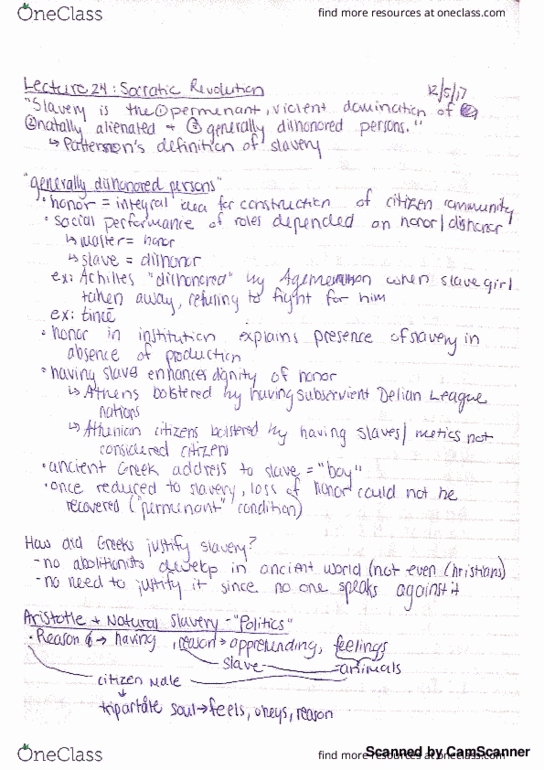 OneClass
find more resources at oneclass.com
Lecture 24: Socratic Revolution
12/5/17
"Slavery is the ① permenant, violent domination of
② natally alienated + ③ generally dishonored persons."
↳ Patterson's definition of slavery
"generally dishonored persons"
• honor = integral idea for construction of citizen community
• social performance of roles depended on honor/dishonor
↳ master = honor
↳ slave = dishonor
ex: Achilles "dishonored" by Agememnon when slave girl
taken away, refusing to fight for him
ex:
• honor in institution explains presence of slavery in
absence of production
• having slave enhances dignity of honor
↳ Athens bolstered by having subservient Delian League
nations
↳ Athenian citizens bolstered by having slaves/metics not
considered citizen
• ancient Greek address to slave = "boy"
• once reduced to slavery, loss of honor could not be
recovered ("permenant" condition)
How did Greeks justify slavery?
- no abolitionists develop in ancient world (not even Christians)
- no need to justify it since no one speaks against it
Aristotle + Natural Slavery - "Politics"
• Reason → having, reason → apprehending, feelings
slave
animals
citizen male
tripartate soul → feels, obeys, reason
OneClass
find more resources at oneclass.com
Scanned by CamScanner